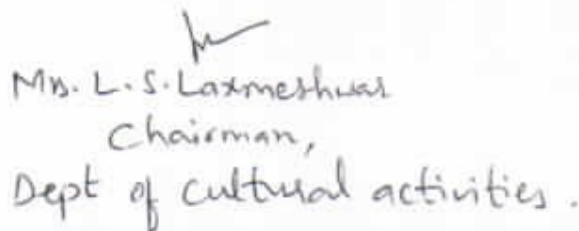 Mr. L. S. Laxmeshwar
Chairman,
Dept of Cultural activities.